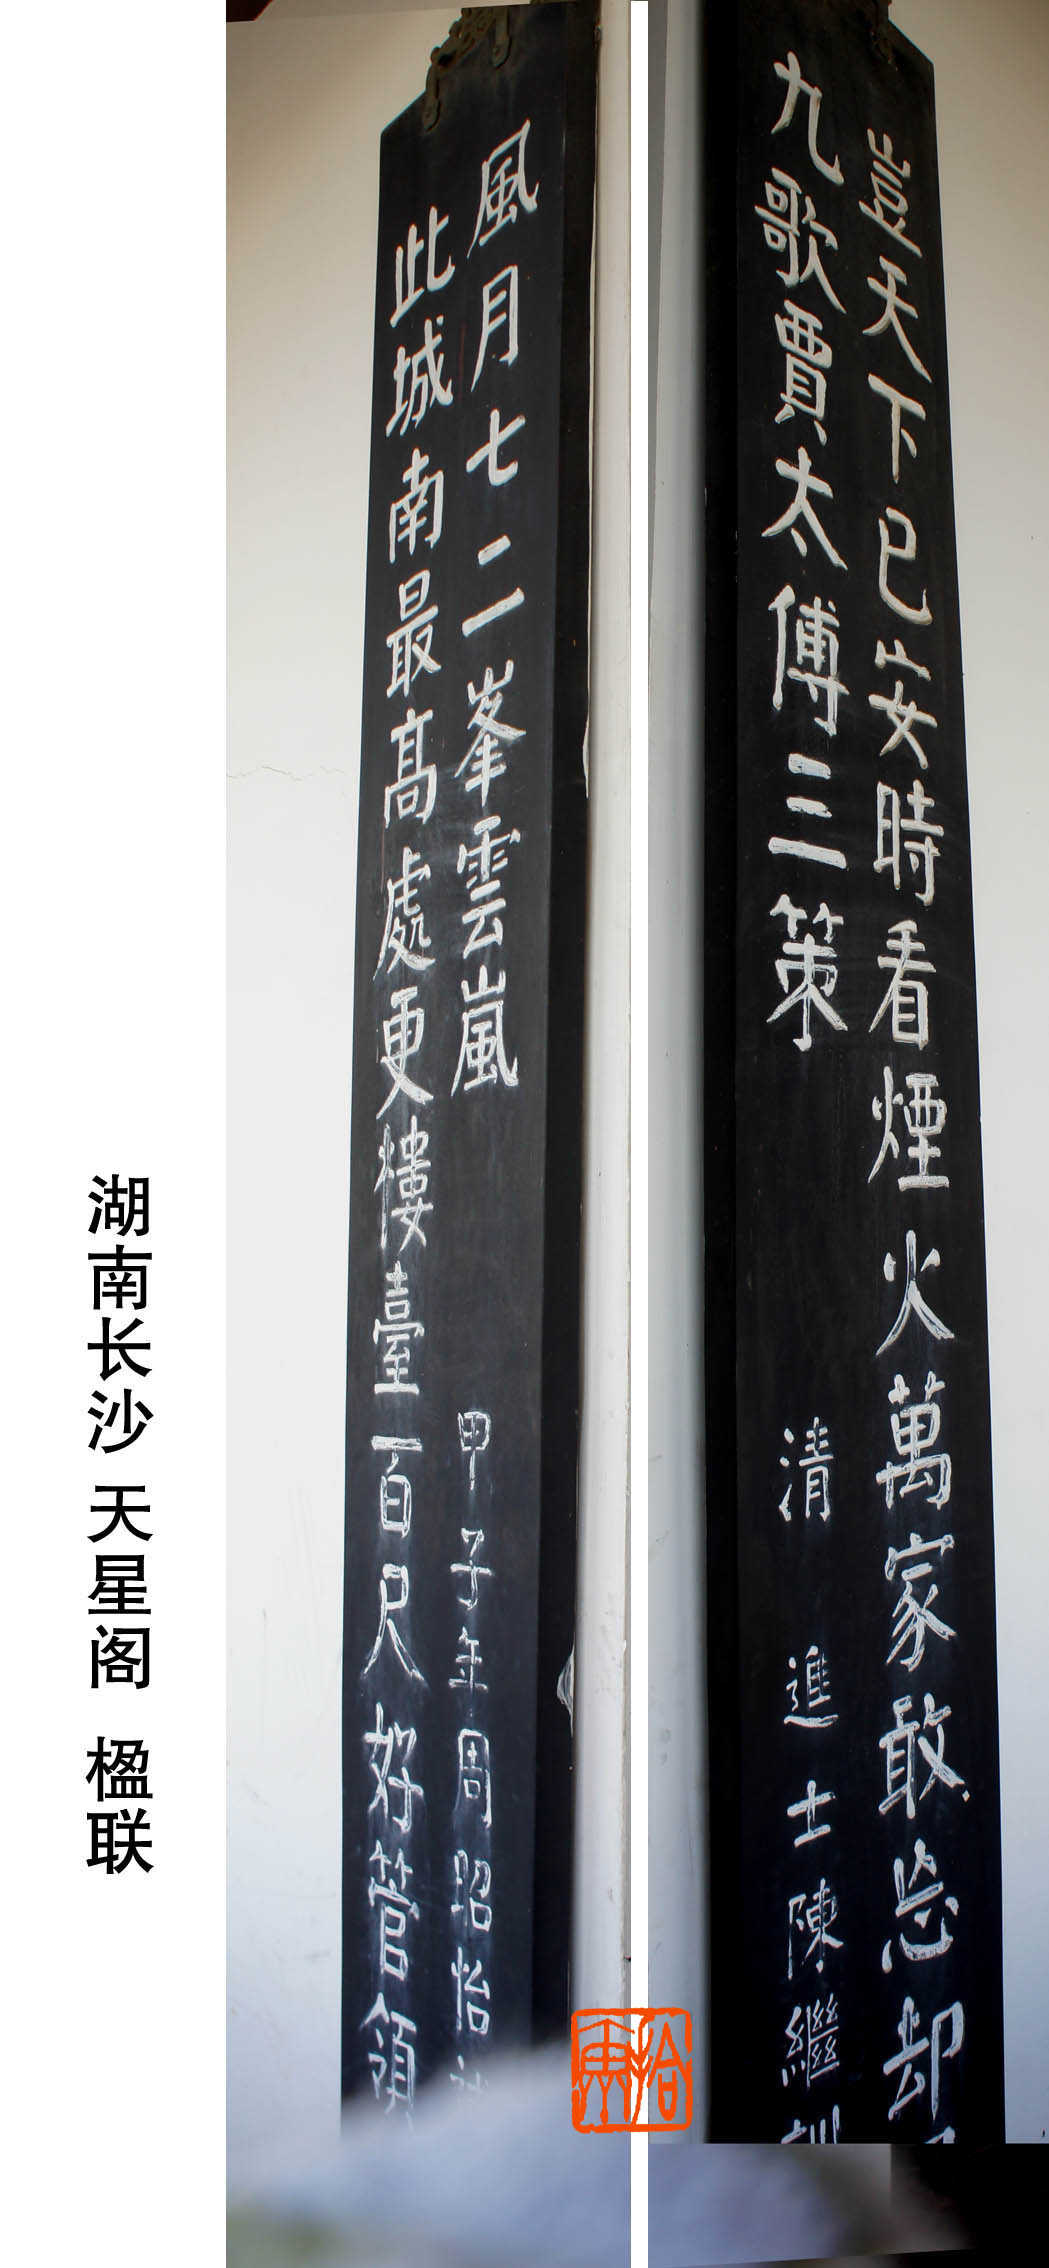 豈天下已安時看煙火萬家敢忘却
九歌賈太傅三策
清 進士陳繼
此城南最高處更樓臺百尺好管領
風月七二峯雲嵐
甲子年周昭怡
湖南长沙 天星阁 楹联